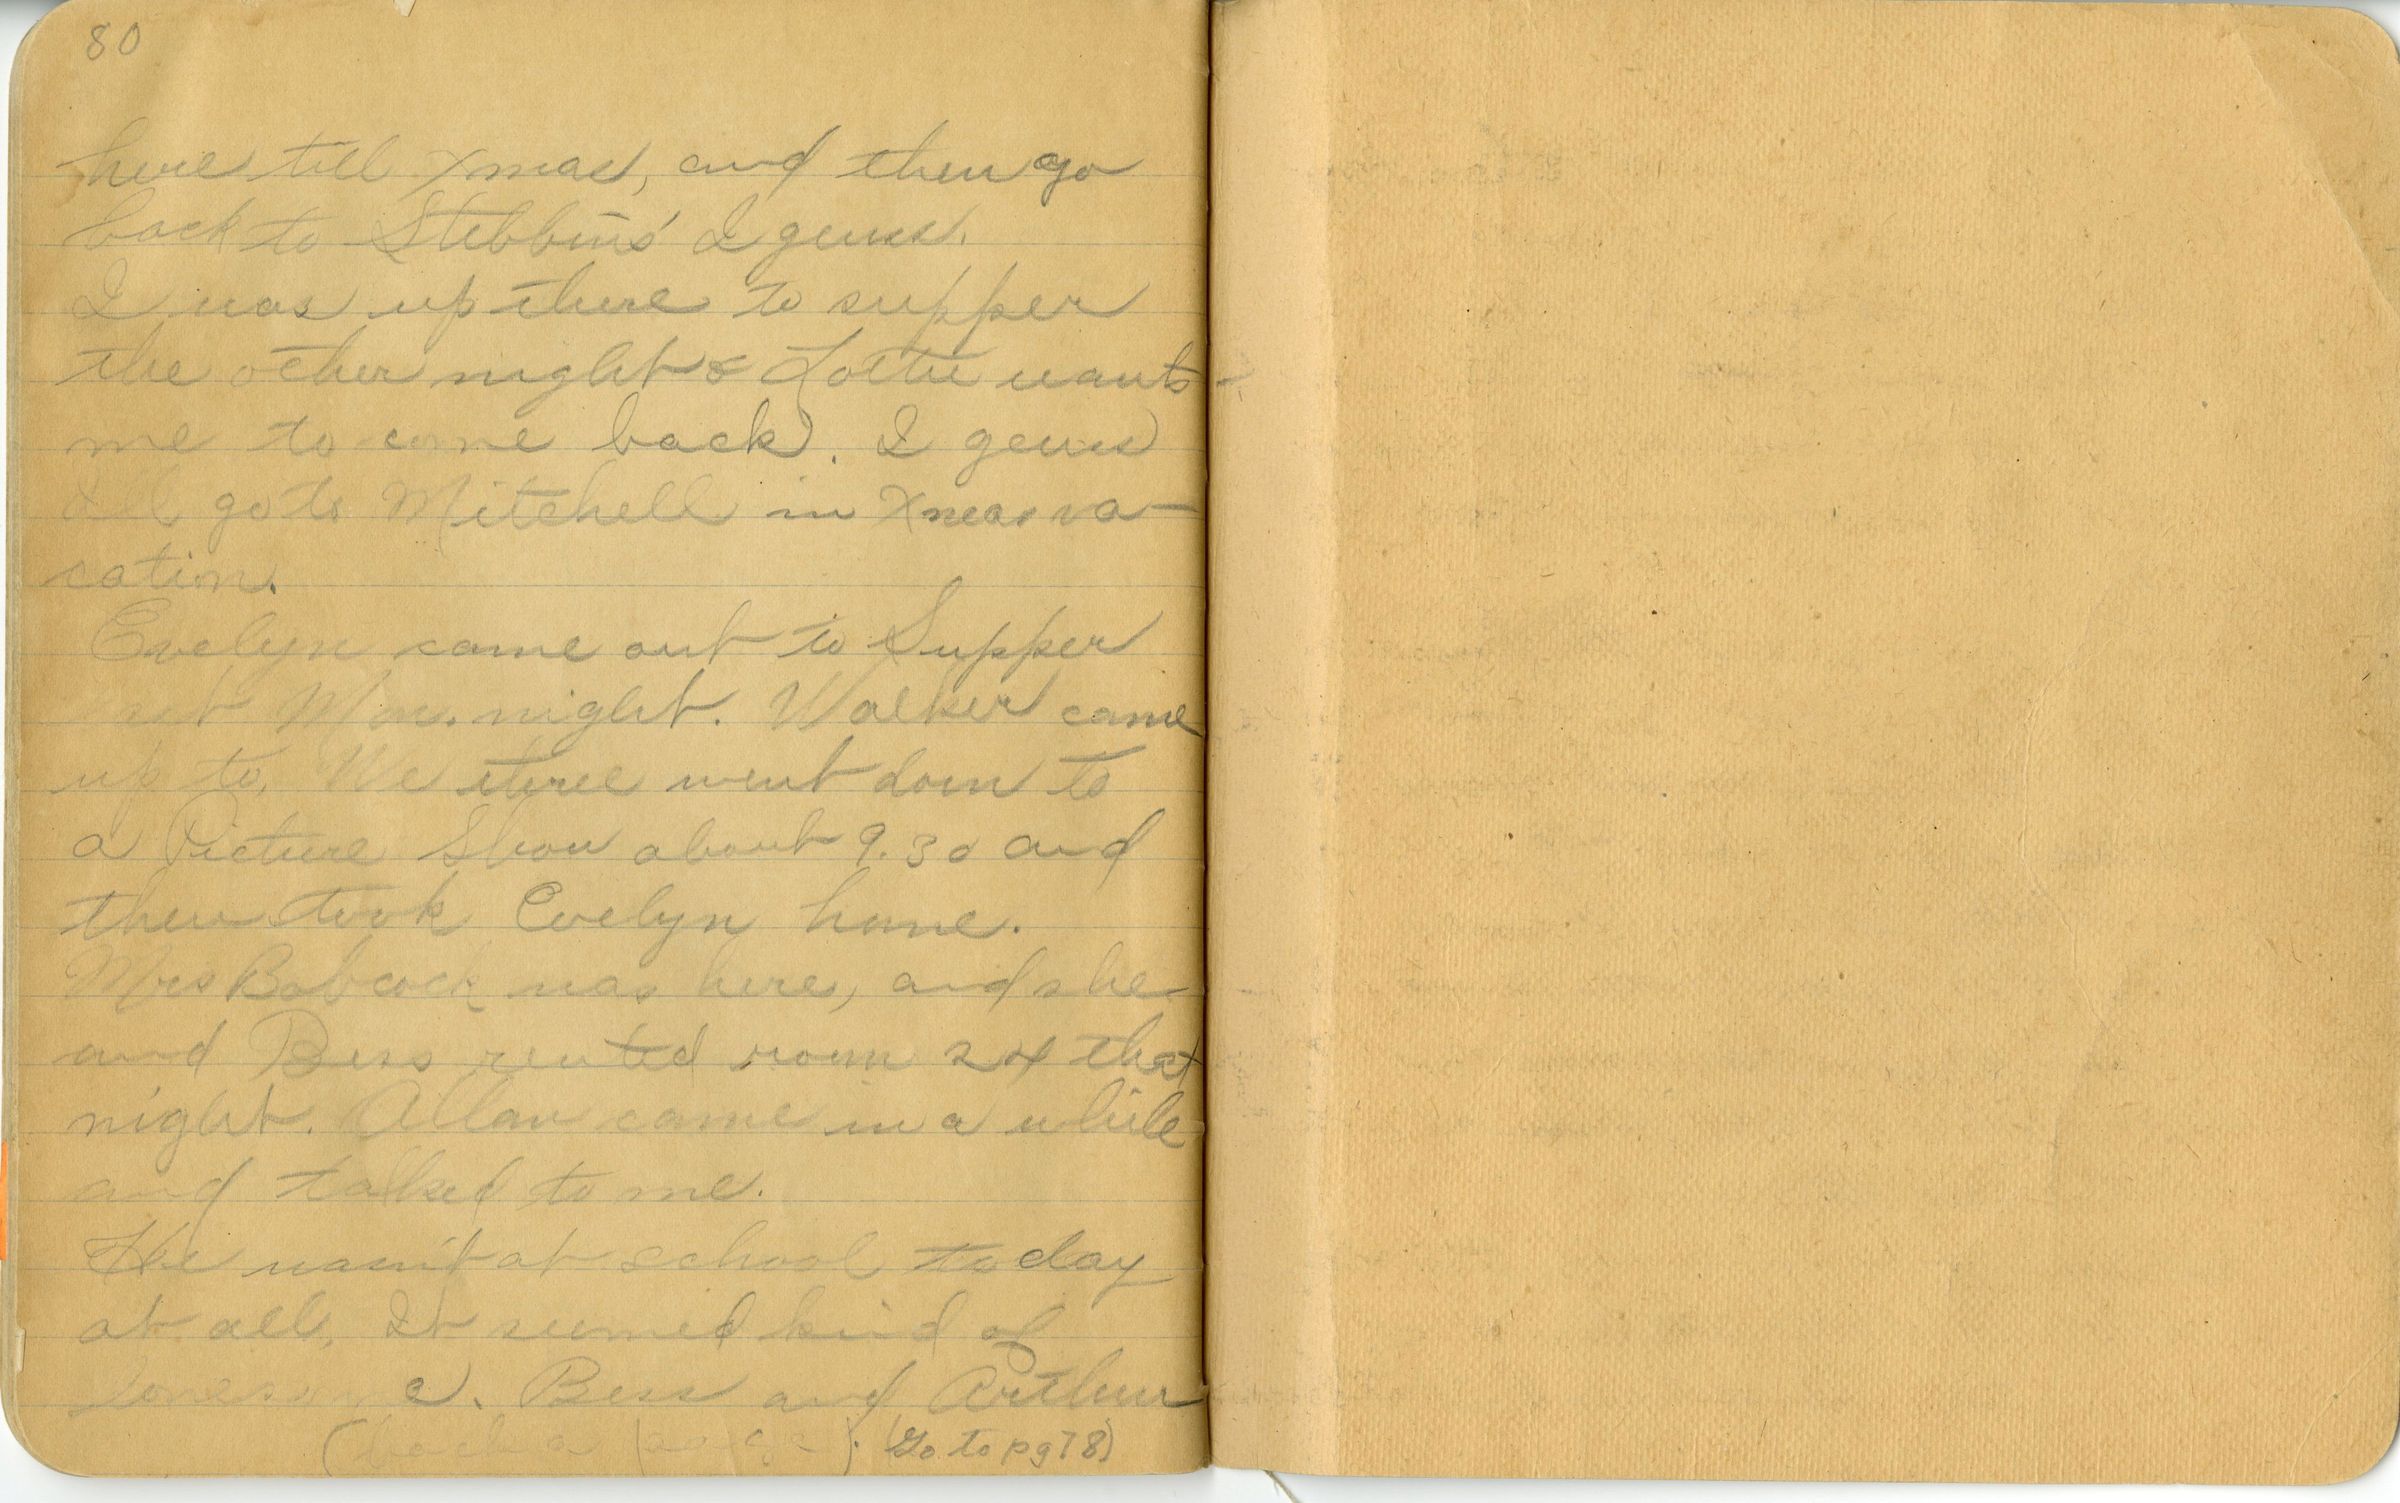 80
here till Xmas, and then go
back to Stebbins' I guess.
I was up there to supper
the other night & Lottie wants
me to come back. I guess
I'll go to Mitchell in Xmas va-
cation.
Evelyn came out to Supper
last Mon. night. Walker came
up to. We three went down to
a Picture Show about 9.30 and
then took Evelyn home.
Mrs Babcock was here, and she
and Bess rented room 24 that
night. Allan came in a while
and talked to me.
He wasn't at school today
at all. It seemed kind of
lonesome. Bess and Arthur
(back a page). (Go to pg 78)